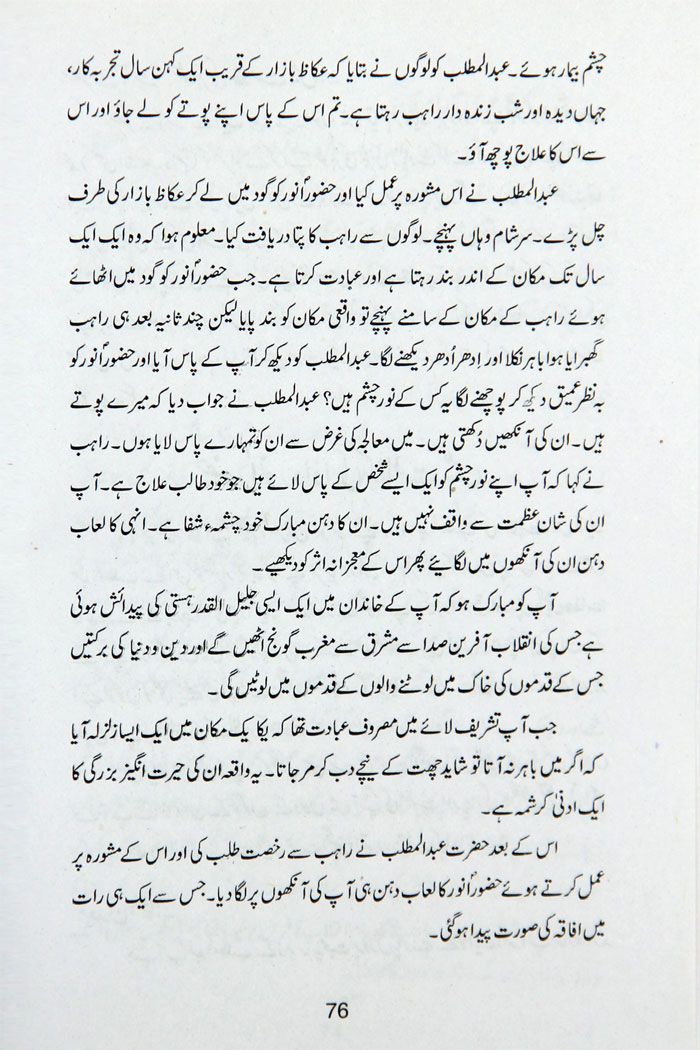 چشم بیمار ہوئے۔ عبدالمطلب کو لوگوں نے بتایا کہ عکاظ بازار کے قریب ایک کہن سال تجربہ کار،
جہاں دیدہ اور شب زندہ دار راہب رہتا ہے۔ تم اس کے پاس اپنے پوتے کو لے جاؤ اور اس
سے اس کا علاج پوچھ آؤ۔
عبدالمطلب نے اس مشورہ پر عمل کیا اور حضورؐ انور کو گود میں لے کر عکاظ بازار کی طرف
چل پڑے۔ سرشام وہاں پہنچے۔ لوگوں سے راہب کا پتا دریافت کیا۔ معلوم ہوا کہ وہ ایک ایک
سال تک مکان کے اندر بند رہتا ہے اور عبادت کرتا ہے۔ جب حضورؐ انور کو گود میں اٹھائے
ہوئے راہب کے مکان کے سامنے پہنچے تو واقعی مکان کو بند پایا لیکن چند ثانیہ بعد ہی راہب
گھبرایا ہوا باہر نکلا اور اِدھر اُدھر دیکھنے لگا۔ عبدالمطلب کو دیکھ کر آپ کے پاس آیا اور حضورؐ انور کو
بہ نظر عمیق دیکھ کر پوچھنے لگا یہ کس کے نور چشم ہیں؟ عبدالمطلب نے جواب دیا کہ میرے پوتے
ہیں۔ ان کی آنکھیں دُکھتی ہیں۔ میں معالجہ کی غرض سے ان کو تمہارے پاس لایا ہوں۔ راہب
نے کہا کہ آپ اپنے نور چشم کو ایک ایسے شخص کے پاس لائے ہیں جو خود طالب علاج ہے۔ آپ
ان کی شان عظمت سے واقف نہیں ہیں۔ ان کا دہن مبارک خود چشمۂ شفا ہے۔ انہی کا لعاب
دہن ان کی آنکھوں میں لگائیے پھر اس کے معجزانہ اثر کو دیکھیے۔
آپ کو مبارک ہو کہ آپ کے خاندان میں ایک ایسی جلیل القدر ہستی کی پیدائش ہوئی
ہے جس کی انقلاب آفرین صدا سے مشرق سے مغرب گونج اٹھیں گے اور دین و دنیا کی برکتیں
جس کے قدموں کی خاک میں لوٹنے والوں کے قدموں میں لوٹیں گی۔
جب آپ تشریف لائے میں مصروف عبادت تھا کہ یکایک مکان میں ایک ایسا زلزلہ آیا
کہ اگر میں باہر نہ آتا تو شاید چھت کے نیچے دب کر مر جاتا۔ یہ واقعہ ان کی حیرت انگیز بزرگی کا
ایک ادنیٰ کرشمہ ہے۔
اس کے بعد حضرت عبدالمطلب نے راہب سے رخصت طلب کی اور اس کے مشورہ پر
عمل کرتے ہوئے حضورؐ انور کا لعاب دہن ہی آپ کی آنکھوں پر لگا دیا۔ جس سے ایک ہی رات
میں افاقہ کی صورت پیدا ہو گئی۔
76